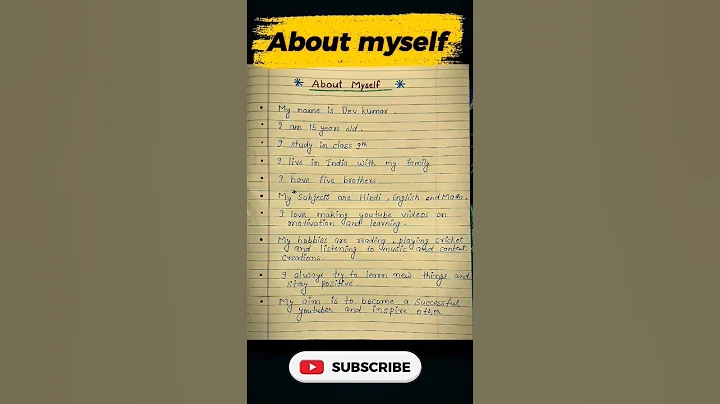 About myself
* About Myself *
• My name is Dev kumar .
• I am 15 years old .
• I study in class 9th
• I live in India with my family
• I have five brothers .
• My * Subjects are Hindi , English and Maths .
• I love making youtube videos on
motivation and learning .
• My hobbies are reading , playing cricket
and listening to music and content
creations .
• I always try to learn new things and
stay positive .
• My aim is to become a successful
youtuber and inspire other .
SUBSCRIBE